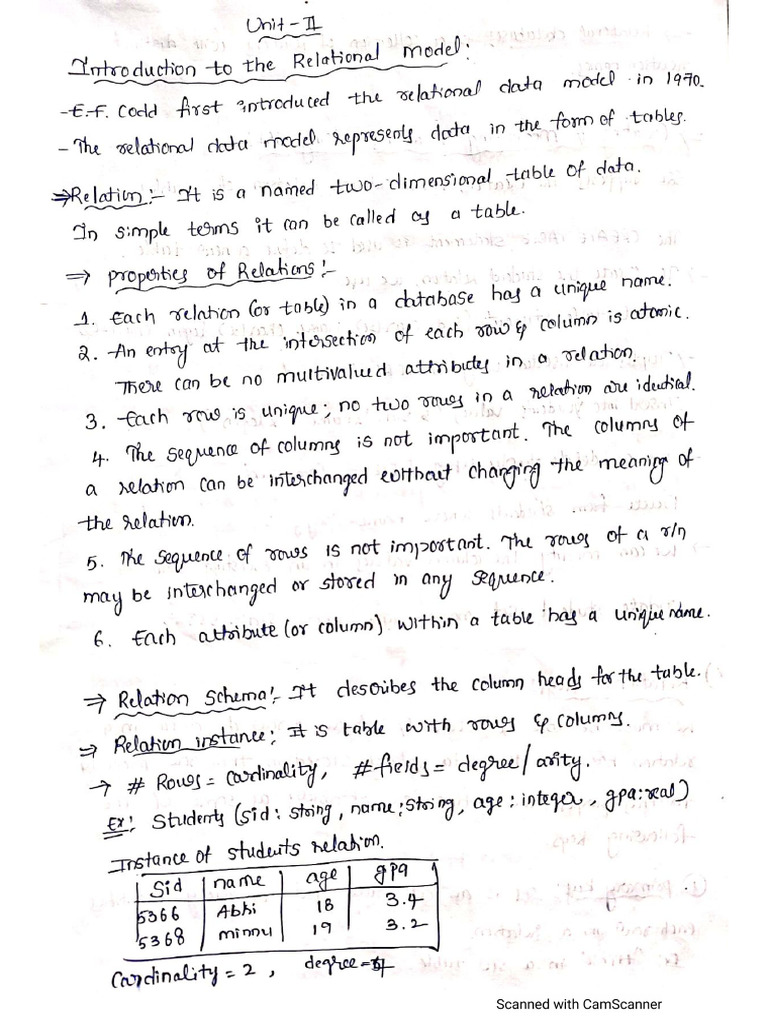 Unit-II
Introduction to the Relational model:
-E.F. Codd first introduced the relational data model in 1970.
- The relational data model represents data in the form of tables.
⇒Relation:- It is a named two-dimensional table of data.
In simple terms it can be called as a table.
⇒ properties of Relations:-
1. Each relation (or table) in a database has a unique name.
2. An entry at the intersection of each row & column is atomic.
There can be no multivalued attributes in a relation.
3. Each row is unique; no two rows in a relation are identical.
4. The sequence of columns is not important. The columns of
a relation can be interchanged without changing the meaning of
the relation.
5. The sequence of rows is not important. The rows of a r/n
may be interchanged or stored in any sequence.
6. Each attribute (or column) within a table has a unique name.
⇒ Relation Schema:- It describes the column heads for the table.
⇒ Relation instance: It is table with rows & columns.
→ # Rows = cardinality, #fields = degree/arity.
Ex: Students (sid: string, name: string, age: integer, gpa: real)
Instance of students relation.
Sid name age gpa
5366 Abhi 18 3.4
5368 minnu 19 3.2
Cardinality = 2, degree = 4
Scanned with CamScanner